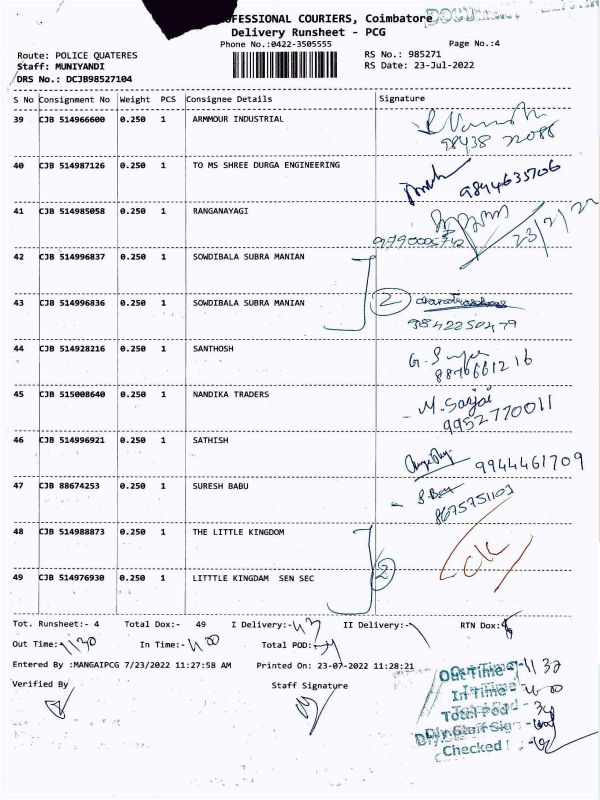 FESSIONAL COURIERS, Coimbatore
Delivery Runsheet - PCG
Phone No.:0422-3505555
Page No.:4
Route: POLICE QUATERES
RS No.: 985271
Staff: MUNIYANDI
RS Date: 23-Jul-2022
DRS No.: DCJB98527104
S No Consignment No Weight PCS Consignee Details Signature
39 CJB 514966600 0.250 1 ARMMOUR INDUSTRIAL
98438
40 CJB 514987126 0.250 1 TO MS SHREE DURGA ENGINEERING
9844635706
41 CJB 514985058 0.250 1 RANGANAYAGI
23/7/22
42 CJB 514996837 0.250 1 SOWDIBALA SUBRA MANIAN
43 CJB 514996836 0.250 1 SOWDIBALA SUBRA MANIAN 2
9842250479
44 CJB 514928216 0.250 1 SANTHOSH
8876661216
45 CJB 515008640 0.250 1 NANDIKA TRADERS
9952770011
46 CJB 514996921 0.250 1 SATHISH 9944461709
47 CJB 88674253 0.250 1 SURESH BABU
8675751103
48 CJB 514988873 0.250 1 THE LITTLE KINGDOM
49 CJB 514976930 0.250 1 LITTTLE KINGDAM SEN SEC 2
Tot. Runsheet:- 4 Total Dox:- 49 I Delivery:- II Delivery:- RTN Dox:
Out Time: 1130 In Time:- 400 Total POD:-
Entered By :MANGAIPCG 7/23/2022 11:27:58 AM Printed On: 23-07-2022 11:28:21
Verified By Staff Signature
Out Time - 11 30
In Time - 4 00
Total Pod -
Dly Staff Sign -
Checked